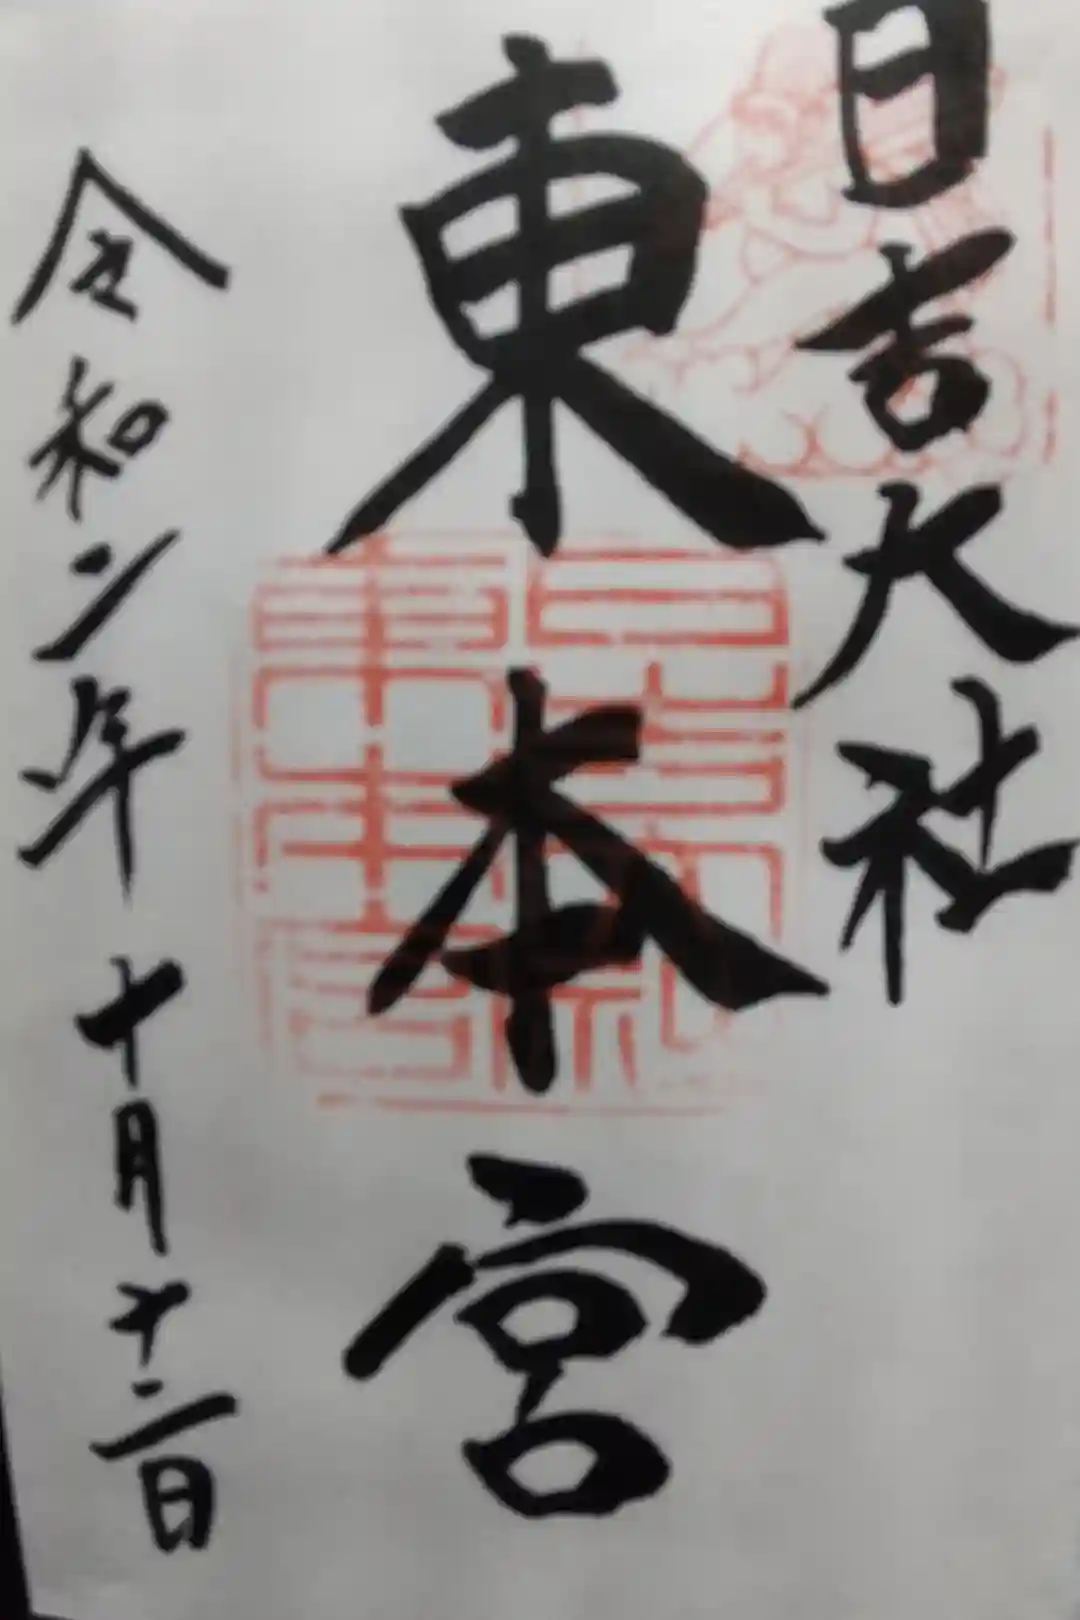 日吉大社
東本宮
令和二年十月十二日